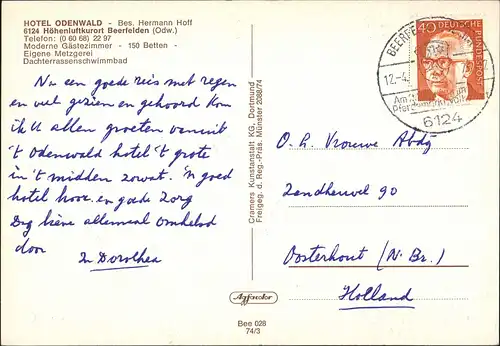 HOTEL ODENWALD - Bes. Hermann Hoff
6124 Höhenluftkurort Beerfelden (Odw.)
Telefon: (0 60 68) 22 97
Moderne Gästezimmer - 150 Betten -
Eigene Metzgerei
Dachterrassenschwimbad
Na een goede reis met regen
en veel gezien en gehoord kom
ik U allen groeten vanuit
't Odenwald hotel 't grote
in 't midden zowat. 'n goed
hotel hoor. en goede zorg
Dag lieve allemaal omhelsd
door
Zr Dorothea
Cramers Kunstanstalt KG, Dortmund
Freigeg. d. Reg.-Präs. Münster 2088/74
Agfacolor
Bee 028
74/3
12.-4.
6124
40
DEUTSCHE BUNDESPOST
O. L. Vrouwe Abdij
Zandheuvel 90
Oosterhout (N. Br.)
Holland